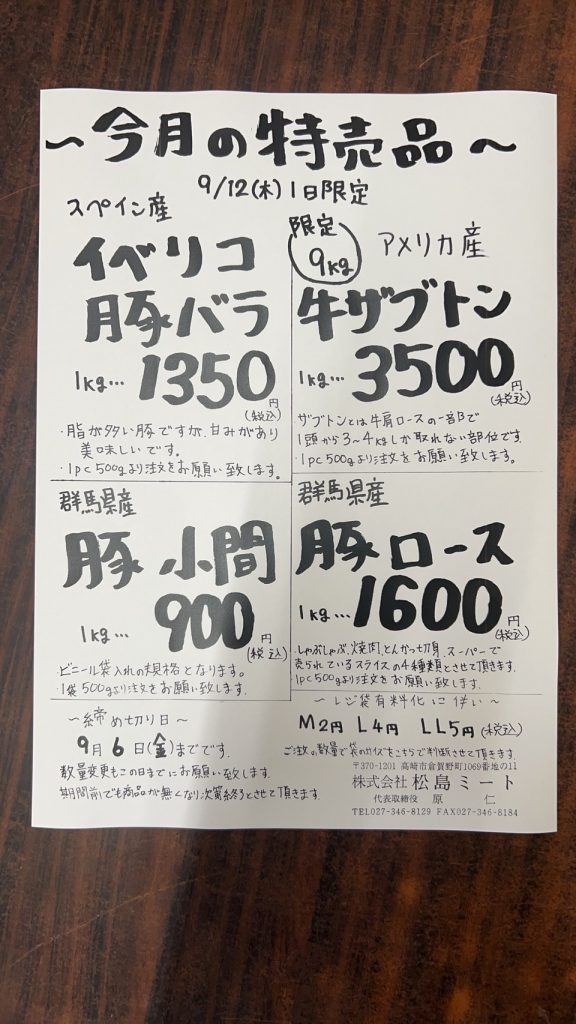 ～今月の特売品～
9/12(木)1日限定
スペイン産
イベリコ
豚バラ
1kg…1350円
(税込)
・脂が多い豚ですが、甘みがあり
美味しいです。
・1pc500gより注文をお願い致します。
限定
9kg
アメリカ産
牛ザブトン
1kg…3500円
(税込)
・ザブトンとは牛肩ロースの一部で
1頭から3～4kgしか取れない部位です。
・1pc500gより注文をお願い致します。
群馬県産
豚小間
1kg…900円
(税込)
・ビニール袋入れの規格となります。
・1袋500gより注文をお願い致します。
群馬県産
豚ロース
1kg…1600円
(税込)
・しゃぶしゃぶ、焼肉、とんかつ切身、スーパーで
売られているスライスの4種類とさせて頂きます。
・1pc500gより注文をお願い致します。
～締め切り日～
9月6日(金)までです。
数量変更もこの日までにお願い致します。
期間前でも商品が無くなり次第終了とさせて頂きます。
～レジ袋有料化に伴い～
M2円 L4円 LL5円(税込)
ご注文の数量で袋のサイズをこちらで判断させて頂きます。
〒370-1201 高崎市倉賀野町1069番地の11
株式会社 松島ミート
代表取締役 原 仁
TEL027-346-8129 FAX027-346-8184